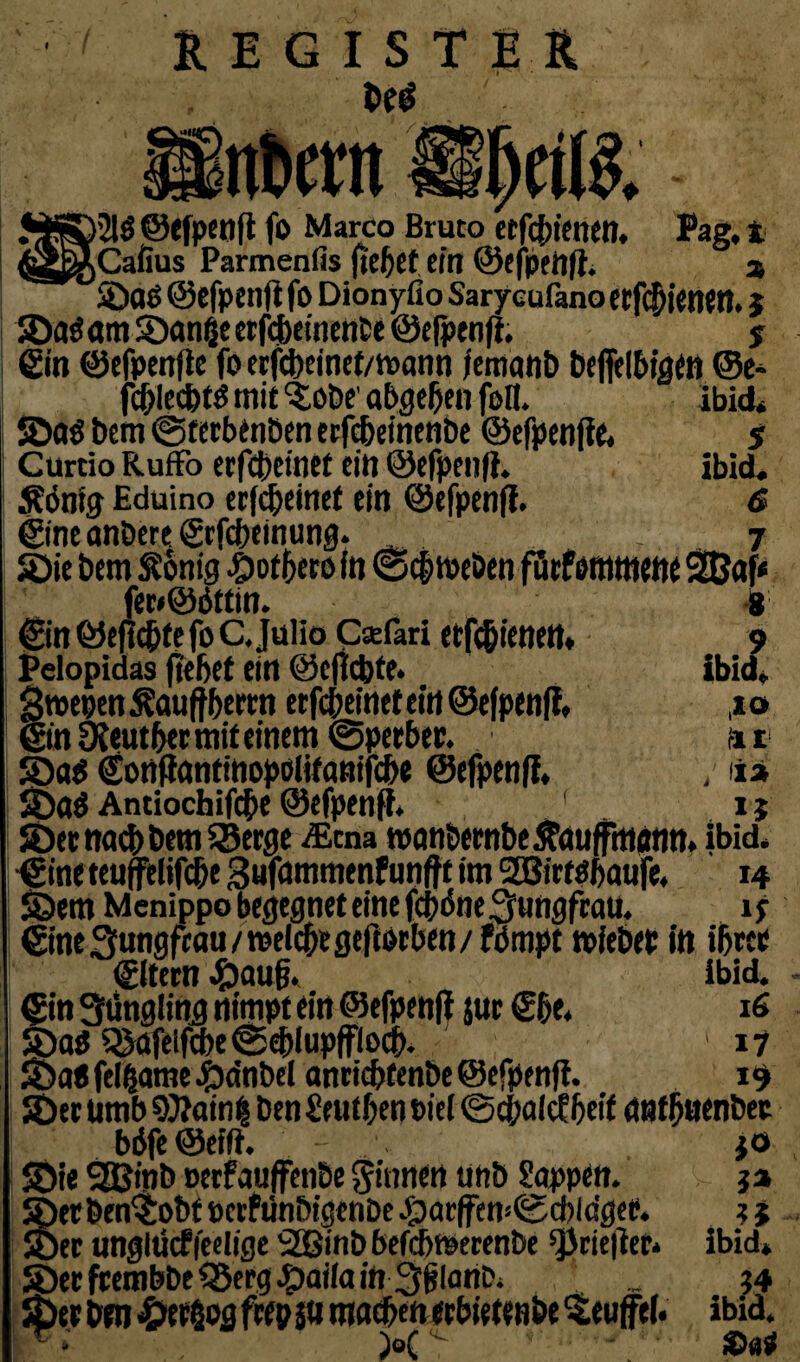 REGISTER
deß
Andern Theils.
DAs Gespenst so Marco Bruto erschienen. Pag. 1
Casius Parmensis siehet ein Gespenst. 2
Das Gespenst so Dionysio Sarycusano erschienen. 3
Das am Dantze erscheinende Gespenst. 5
Ein Gespenste so erscheinet/wann jemand desselbigen Ge-
schlechts mit Tode abgehen soll. ibid.
Das dem Sterbenden erscheinende Gespenste. 5
Curtio Ruffo erscheinet ein Gespenst. ibid.
König Eduino erscheinet ein Gespenst. 6
Eine andere Erscheinung. 7
Die dem König Hothero in Schweden fürkommene Was-
ser-Göttin. 8
Ein Gesichte so C. Julio Cæsari erschienen. 9
Pelopidas siehet ein Gesichte. ibid.
Zweyen Kauffherrn erscheinet ein Gespenst. 10
Ein Reuther mit einem Sperber. 11
Das Constantinopolitanische Gespenst. 12
Das Antiochische Gespenst. 13
Der nach dem Berge Ætna wandernde Kauffmann. ibid.
Eine teuffelische Zusammenkunfft im Wirtshause. 14
Dem Menippo begegnet eine schöne Jungfrau. 15
Eine Jungfrau/welche gestorben/kömpt wieder in ihrer
Eltern Hauß. ibid.
Ein Jüngling nimpt ein Gespenst zur Ehe. 16
Das Baselsche Schlupffloch. 17
Das seltzame Händel anrichtende Gespenst. 19
Der umb Maintz den Leuthen viel Schalckheit anthuender
böse Geist. 30
Die Wind verkauffende Finnen und Lappen. 32
Der den Todt verkündigende Harffen-Schläger. 33
Der unglückseelige Wind beschwerende Priester. ibid.
Der frembde Berg Haila in Ißland. 34
Der den Hertzog frey zu machen erbietende Teuffel. ibid.
)o( Das